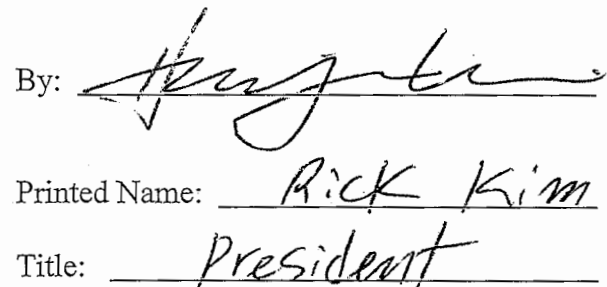 By:
Printed Name: Rick Kim
Title: President